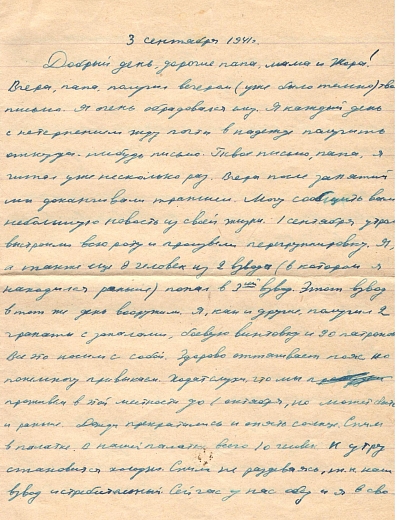 3 сентября 1941г.
Добрый день, дорогие папа, мама и Жора!
Вчера, папа, получил вечером (уже было темно) твое
письмо. Я очень обрадовался ему. Я каждый день
с нетерпением жду почты в надежде получить
откуда-нибудь письмо. Твое письмо, папа, я
читал уже несколько раз. Вчера после занятий
мы доканчивали траншеи. Могу сообщить вам
небольшую новость из своей жизни. 1 сентября, утром
выстроили всю роту и произвели перегруппировку. Я,
а также еще 8 человек из 2 взвода (в котором я
находился раньше) попал в 3ий взвод. Этот взвод
в тот же день вооружили. Я, как и другие, получил 2
гранаты с запалами, боевую винтовку и 90 патронов
Все это носим с собой. Здорово оттягивает пояс, но
понемногу привыкаем. Ходят слухи, что мы
проживем в этой местности до 1 октября, но может быть
и раньше. Дожди прекратились и опять солнце. Спим
в палатке. В нашей палатке всего 10 человек. К утру
становится холодно. Спим не раздеваясь, т.к. наш
взвод истребительный. Сейчас у нас обед и я в сво